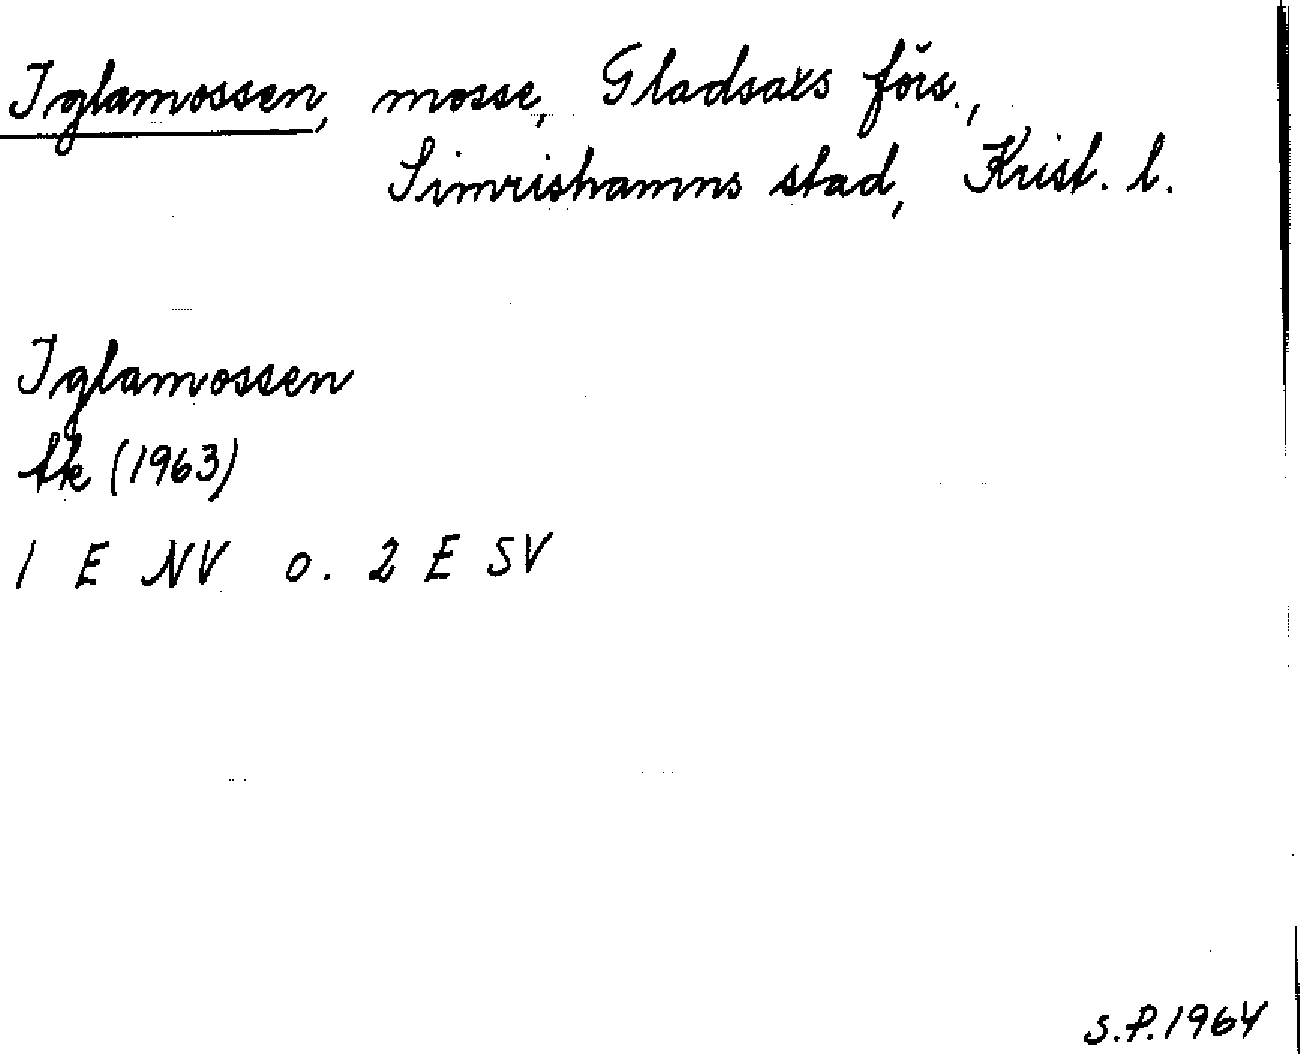 Iglamossen, mosse, Gladsaxs förs.,
Simrishamns stad, Krist. l.
Iglamossen
Ek (1963)
1 E NV o. 2 E SV
S.P. 1964